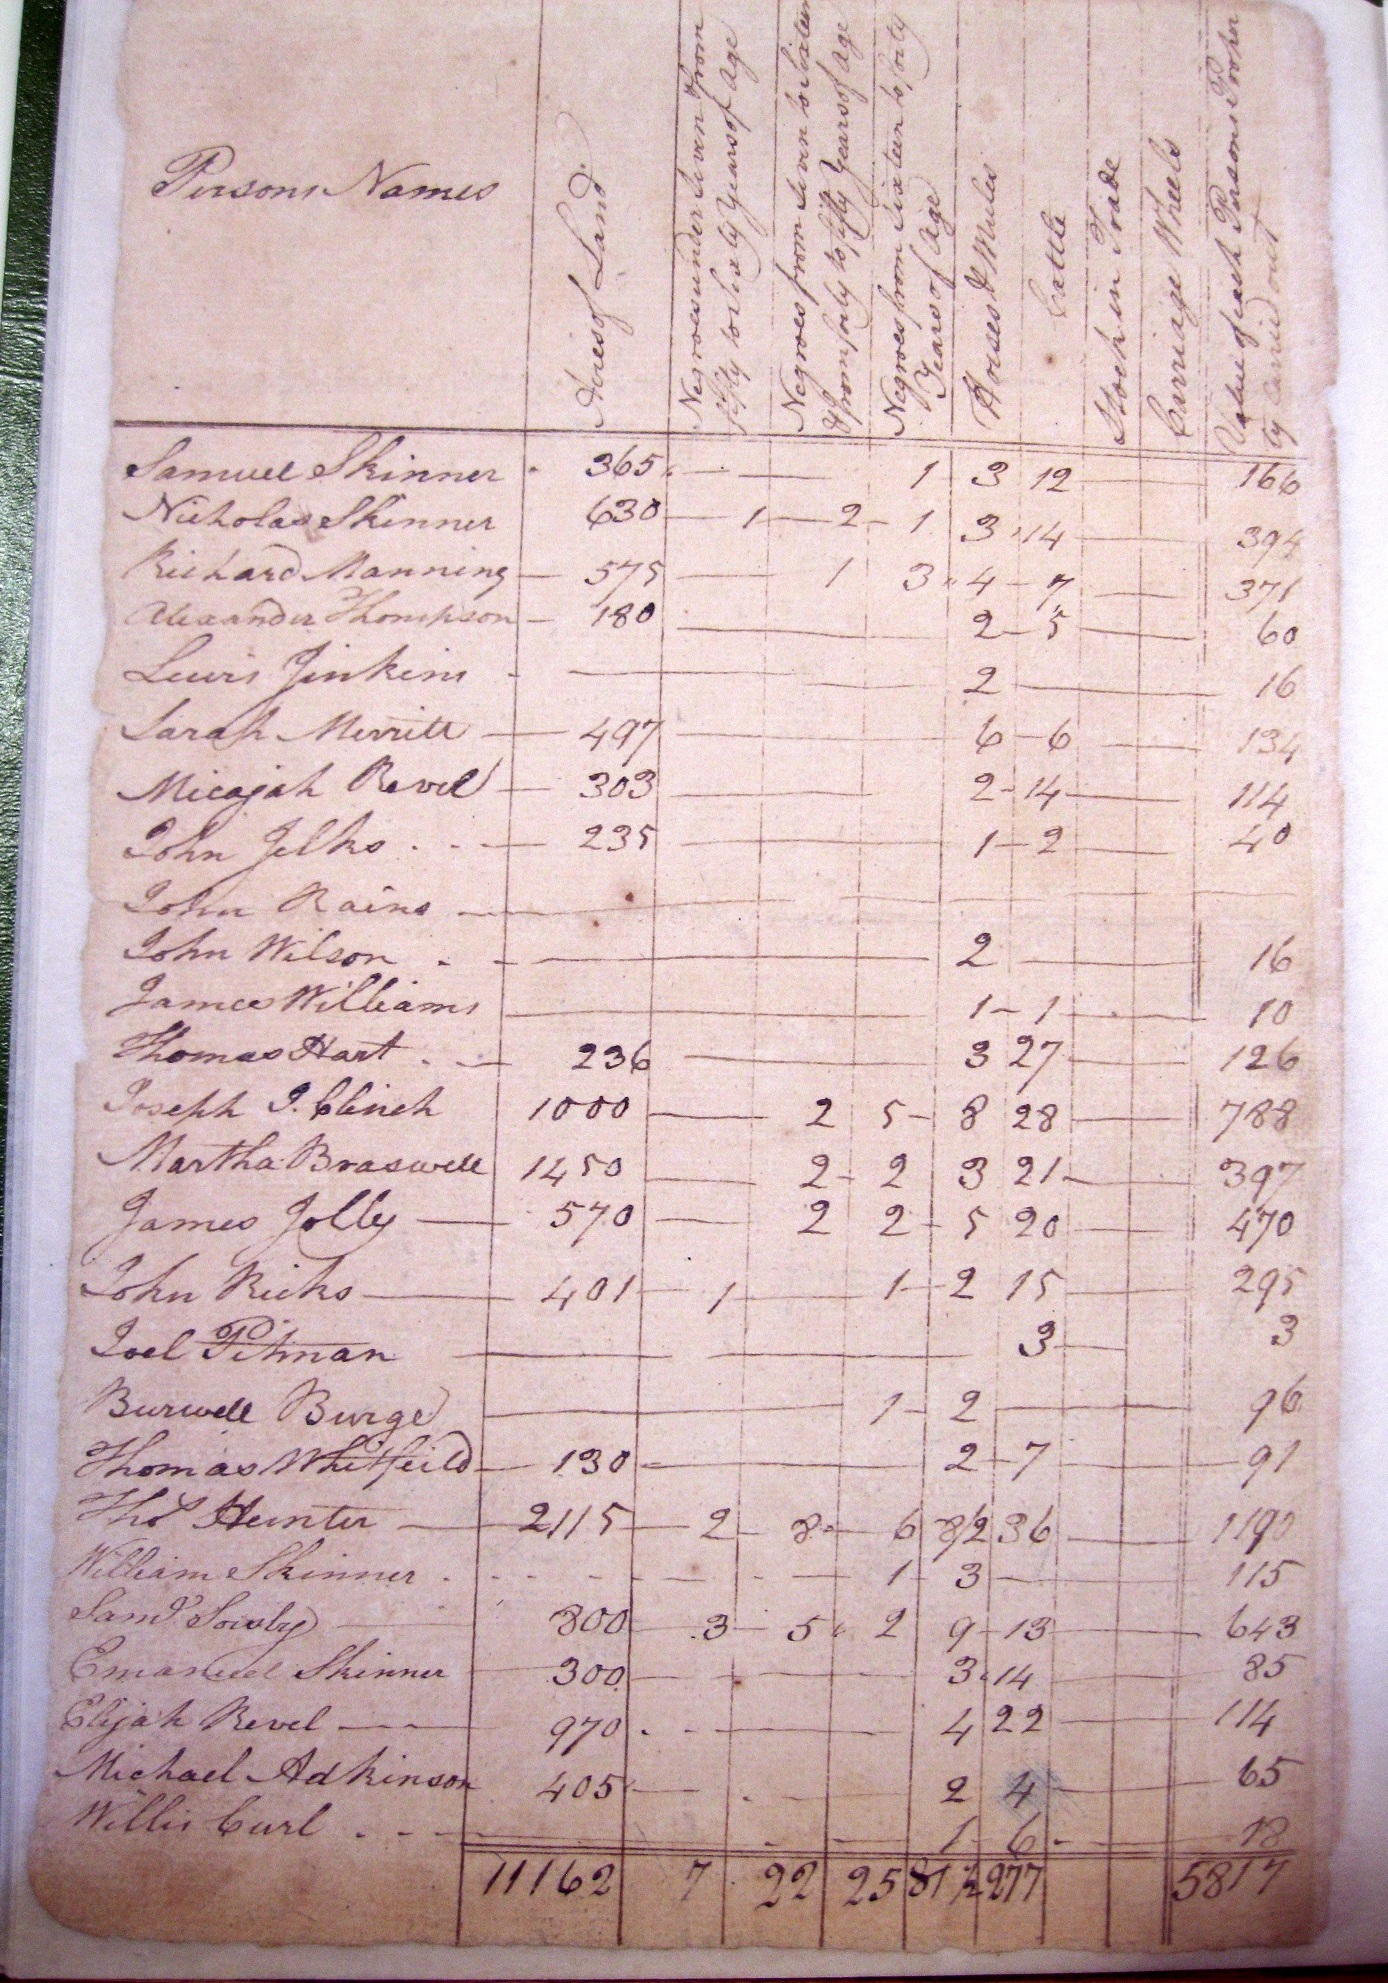 Persons Names
Acres of Land
Negroes under Seven & from
fifty to Sixty Years of Age
Negroes from Seven to Sixteen
& from forty to fifty Years of Age
Negroes from Sixteen to forty
Years of Age
Horses & Mules
Cattle
Stock in Trade
Carriage Wheels
Value of each Persons Proper
ty Carried out
Samuel Skinner 365 1 3 12 166
Nicholas Skinner 630 1 2 1 3 14 394
Richard Manning 575 1 3 4 7 371
Alexander Thompson 180 2 5 60
Lewis Jinkins 2 16
Sarah Merritt 497 6 6 134
Micajah Revel 303 2 14 114
John Jelks 235 1 2 40
John Rains
John Wilson 2 16
James Williams 1 1 10
Thomas Hart 236 3 27 126
Joseph J. Clinch 1000 2 5 8 28 788
Martha Braswell 1450 2 2 3 21 397
James Jolly 570 2 2 5 20 470
John Ricks 401 1 1 2 15 295
Joel Pitman 3 3
Burwell Burge 1 2 96
Thomas Whitfeild 130 2 7 91
Thos Hunter 2115 2 8 6 8/2 36 1190
William Skinner 1 3 115
Saml Sorsby 800 3 5 2 9 13 643
Emanuel Skinner 300 3 14 85
Elijah Revel 970 4 22 114
Michael Adkinson 405 2 4 65
Willis Curl 1 6 18
11162 7 22 25 81 1/2 277 5817